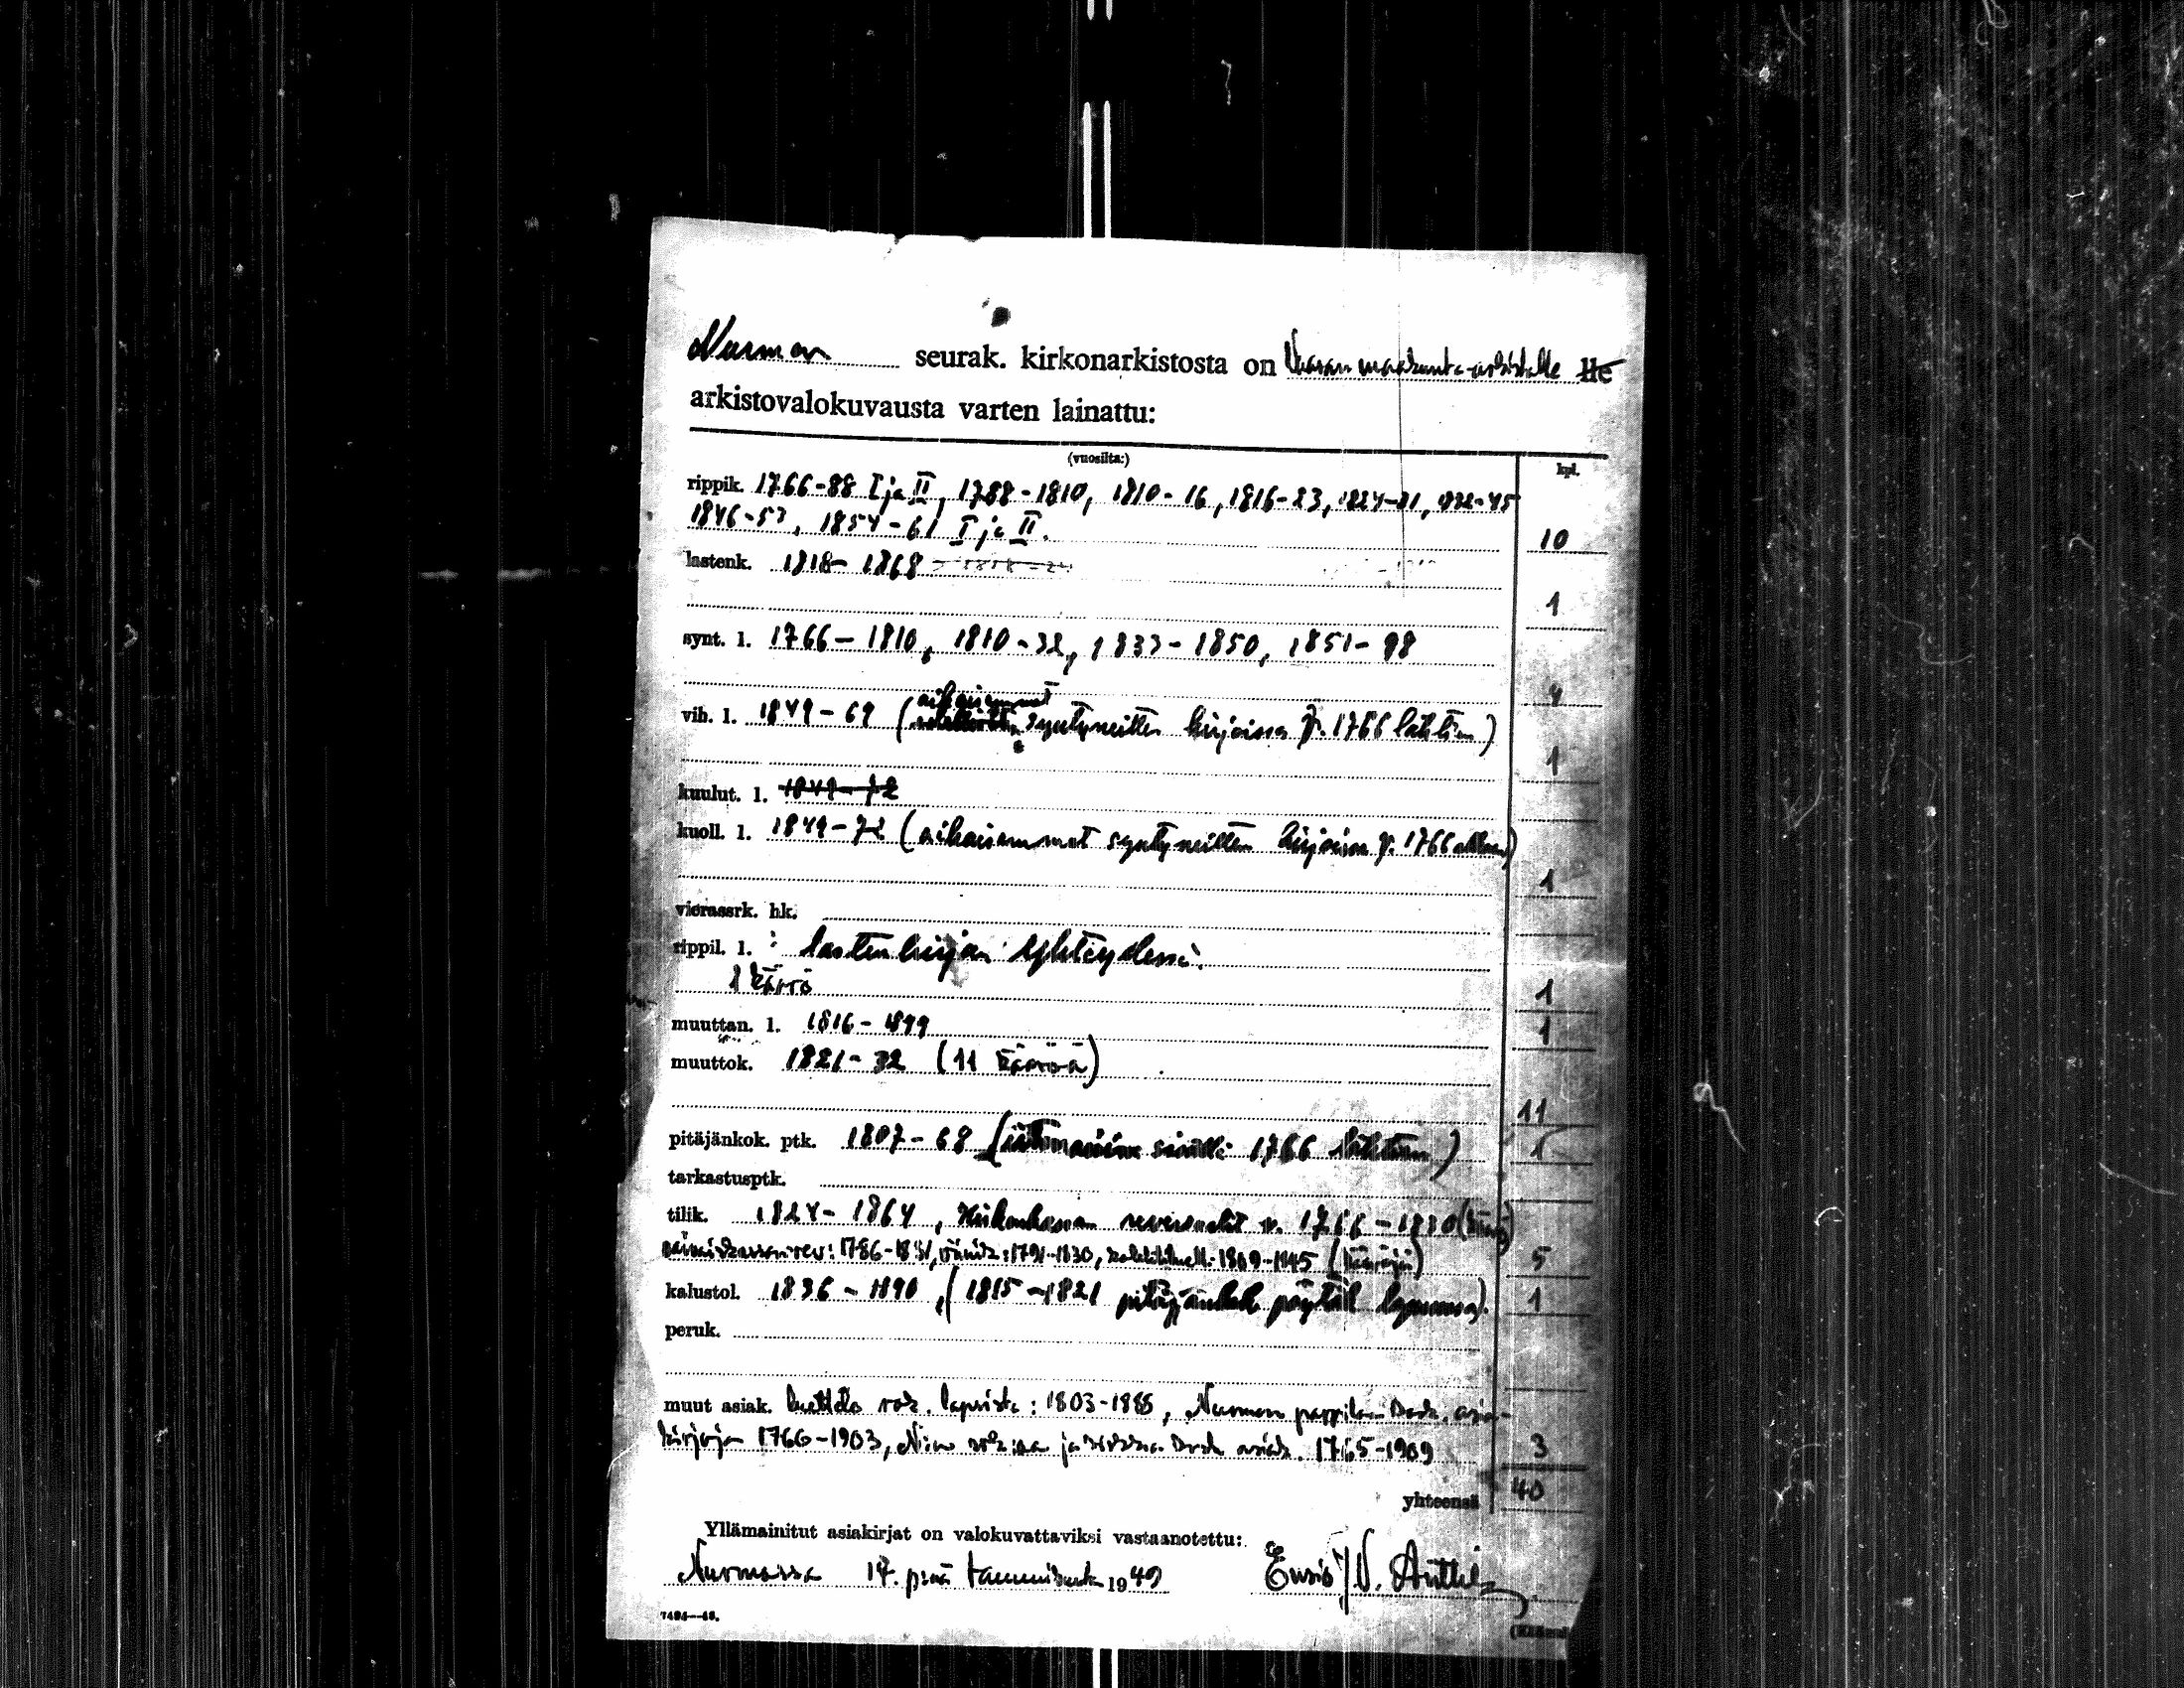 Nurmon seurak. kirkonarkistosta on Vaasan maakunta-arkistolle lle
arkistovalokuvausta varten lainattu:
(vuosilta:) kpl.
rippik. 1766-88 I ja II, 1788-1810, 1810-16, 1816-23, 1824-31, 1832-45
1846-53, 1854-61 I ja II. 10
lastenk. 1818-1868
1
synt. l. 1766-1810, 1810-32, 1833-1850, 1851-98
4
aikaisemmat
vih. l. 1849-69 ( syntyneitten kirjoissa v. 1766 lähtien)
1
kuulut. l. 1849-72
kuoll. l. 1849-72 (aikaisemmat syntyneitten kirjoissa v. 1766 alkaen)
1
vierassrk. hk.
rippil. l. : lastenkirjan yhteydessä.
1 käärö 1
muuttan. l. 1816-1899 1
muuttok. 1821-32 (11 kääröä)
11
pitäjänkok. ptk. 1807-68 ( 1766 lähtien) 1
tarkastusptk.
tilik. 1824-1864, 1766-1830
1786-1831, 1791-1830, 1809-1845 5
kalustol. 1836-1890, (1815-1821 pitäjänkok. pöytäk. lopussa). 1
peruk.
muut asiak. luettelo rok. lapsista: 1803-1885, Nurmon pappilan asia-
kirjoja 1766-1903, 1765-1909 3
yhteensä 40
Yllämainitut asiakirjat on valokuvattaviksi vastaanotettu:
Nurmossa 17. p:nä tammikuuta 1949
7494—48.